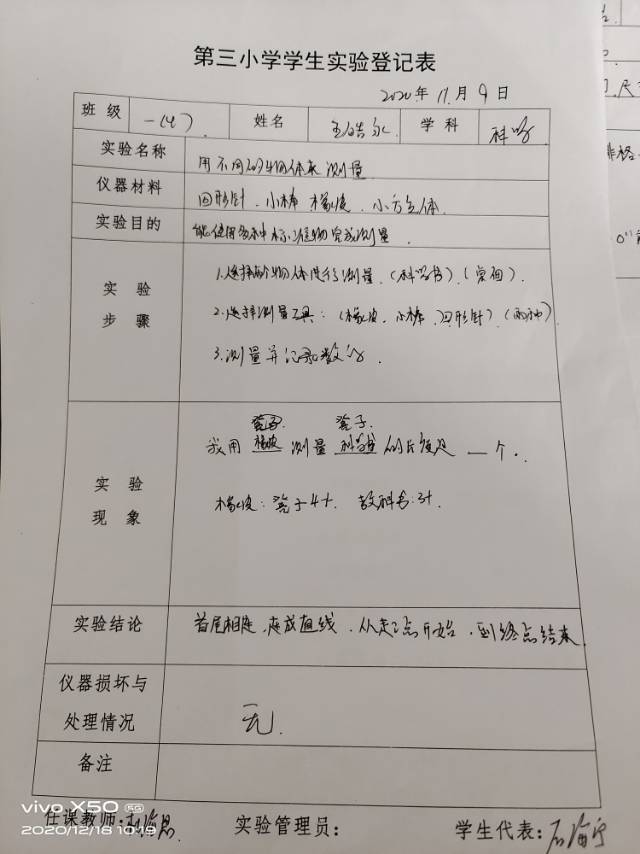 第三小学学生实验登记表
2020年 11.月 9 日
班级 一(七) 姓名 学科 科学
实验名称 用不同的物体来测量
仪器材料 回形针、小棒 橡皮、小方立体
实验目的 能使用多种标准物完成测量
实验步骤
1.选择两个物体进行测量、(科学书)、(桌面).
2.选择测量工具:(橡皮、小棒、回形针)(两种)
3.测量并记录数
实验现象
凳子 凳子.
我用 橡皮 测量 科学书 的长度是 一 个.
橡皮:凳子4个. 教科书:3个
实验结论 首尾相连.连成直线.从起点开始.到终点结束
仪器损坏与处理情况 无.
备注
任课教师: 实验管理员: 学生代表:
vivo X50 5G
2020/12/18 10:19